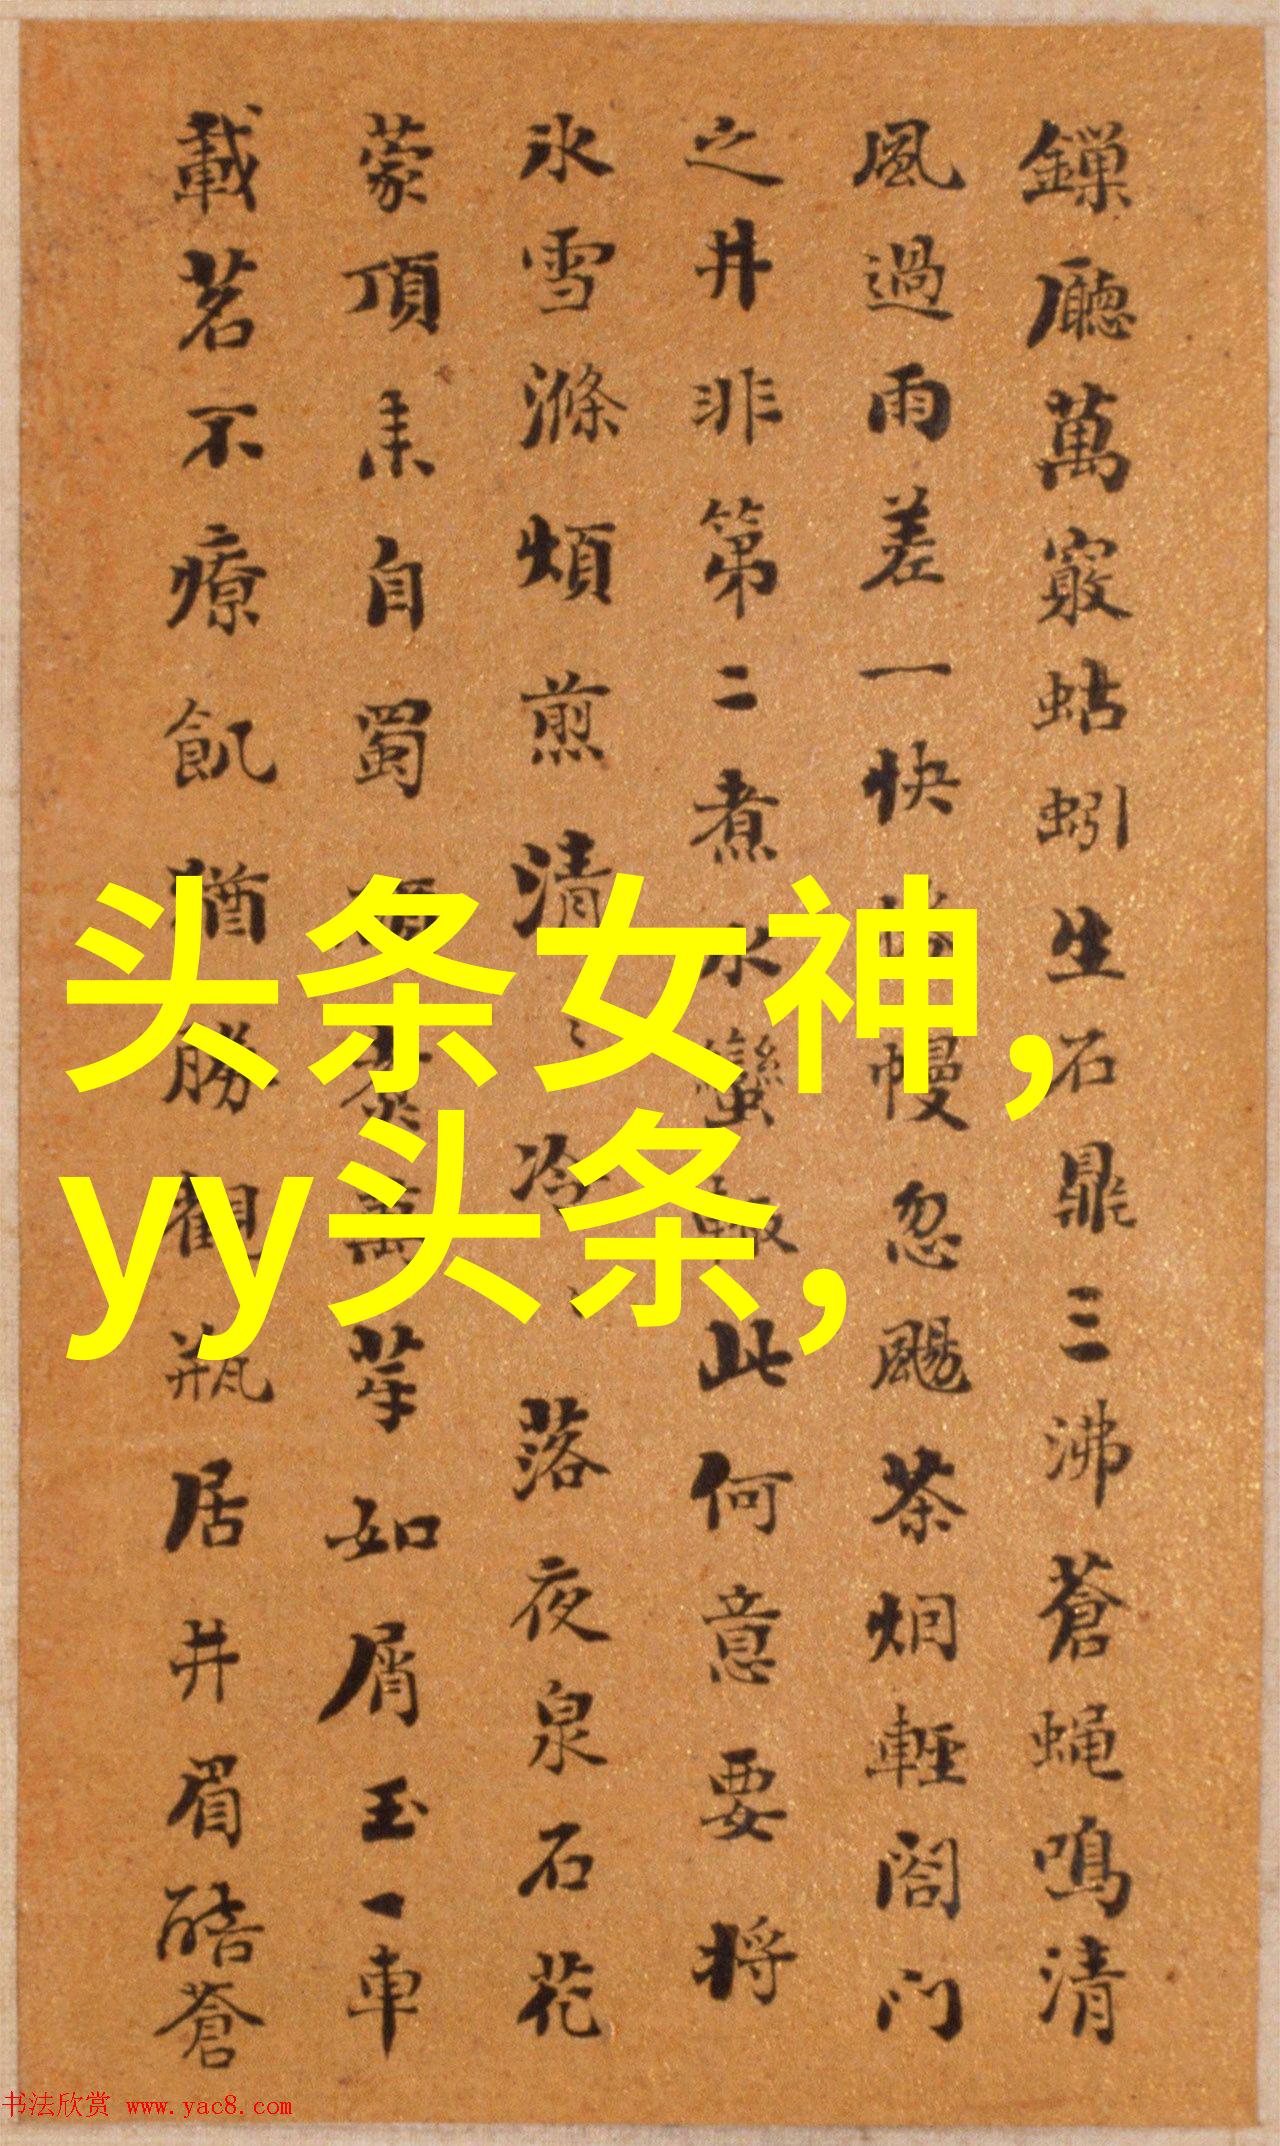 鏁廳萬竅蚯蚓生石鼎三沸蒼蝇鳴清
風過雨差一快 幔忽颺茶烟輕閤门
之井非第二煮水蠻 此何意要将
氷雪滌煩煎清 冷 落夜泉石花
蒙頂来自蜀 萬芽如屑玉一車
載茗不療飢猶勝觀瓶居井眉酷蒼
头条女神,
yy头条,
书法欣赏 www.yac8.com